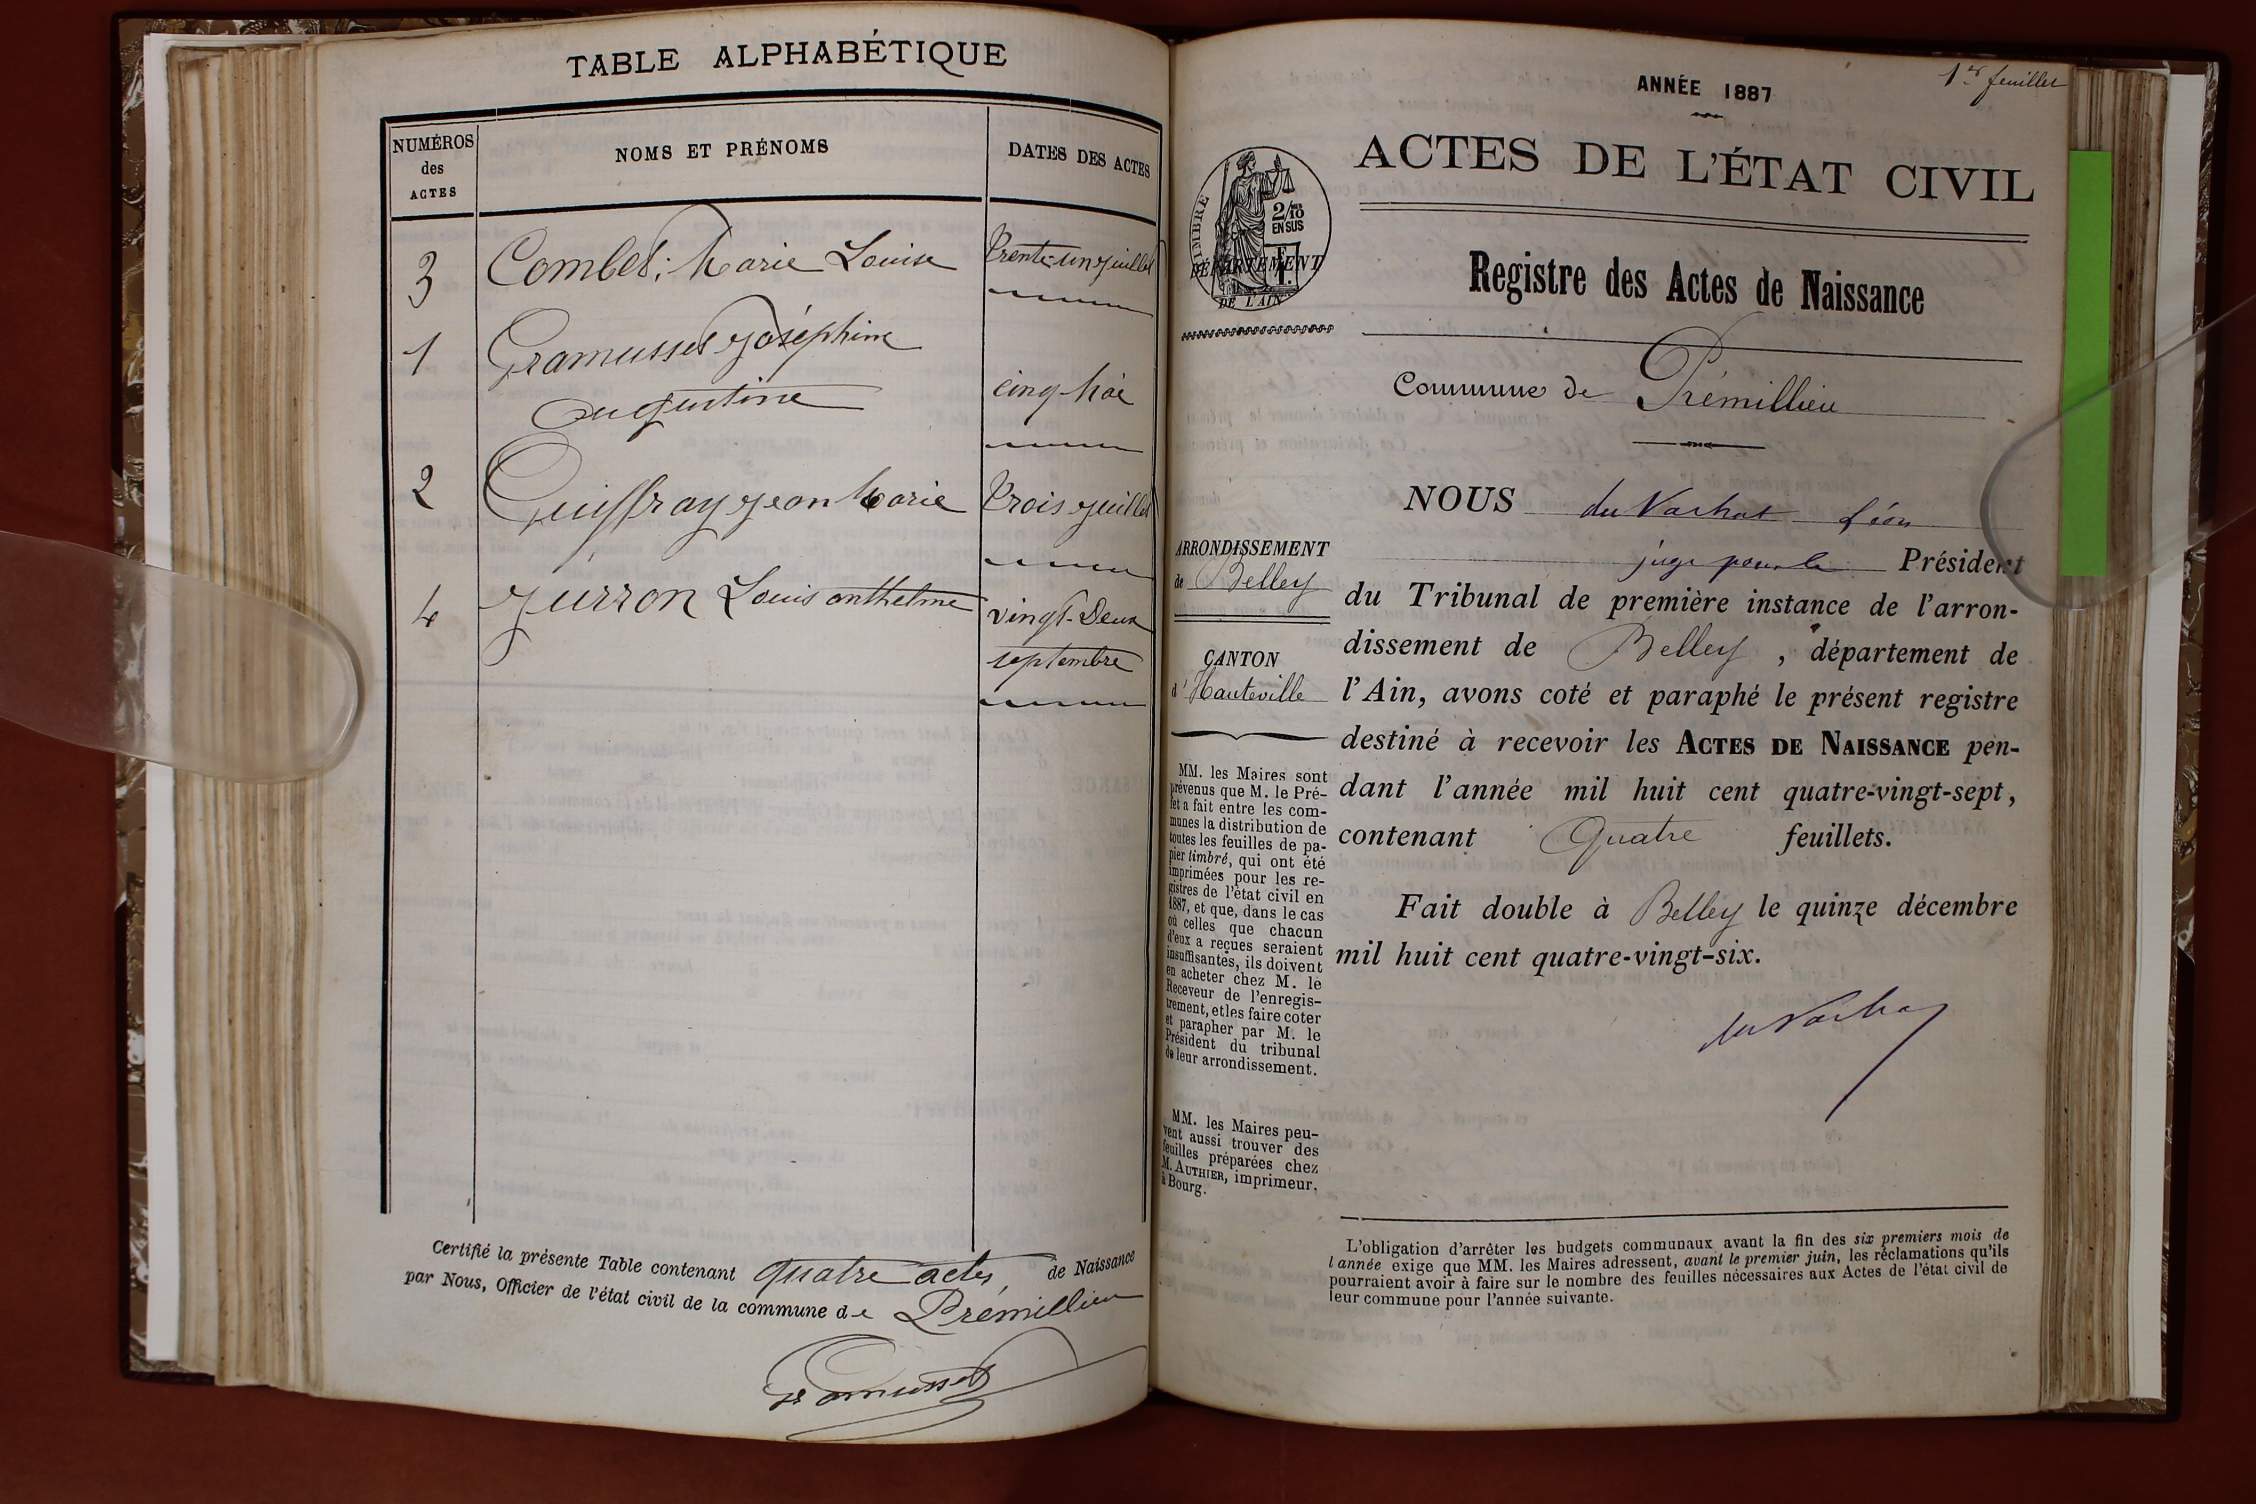 TABLE ALPHABÉTIQUE
NUMÉROS
des
ACTES
NOMS ET PRÉNOMS
DATES DES ACTES
3 Combet; Marie Louise Trente-un juillet
1 Gramusset Joséphine
augustine cinq Mai
2 Guiffray Jean Marie Trois juillet
4 Jurron Louis anthelme vingt-Deux
septembre
Certifié la présente Table contenant quatre actes, de Naissance
par Nous, Officier de l'état civil de la commune de Prémillieu
Gramusset
1er feuillet
ANNÉE 1887
ACTES DE L'ÉTAT CIVIL
TIMBRE
2/10
EN SUS
DÉPARTEMENT
DE L'AIN
Registre des Actes de Naissance
Commune de Prémillieu
ARRONDISSEMENT
de Belley
CANTON
d'Hauteville
MM. les Maires sont
prévenus que M. le Pré-
fet a fait entre les com-
munes la distribution de
toutes les feuilles de pa-
pier timbré, qui ont été
imprimées pour les re-
gistres de l'état civil en
1887, et que, dans le cas
où celles que chacun
d'eux a reçues seraient
insuffisantes, ils doivent
en acheter chez M. le
Receveur de l'enregis-
trement, et les faire coter
et parapher par M. le
Président du tribunal
de leur arrondissement.
MM. les Maires peu-
vent aussi trouver des
feuilles préparées chez
M. AUTHIER, imprimeur,
à Bourg.
NOUS du Vachat Léon
juge pour le Président
du Tribunal de première instance de l'arron-
dissement de Belley, département de
l'Ain, avons coté et paraphé le présent registre
destiné à recevoir les ACTES DE NAISSANCE pen-
dant l'année mil huit cent quatre-vingt-sept,
contenant Quatre feuillets.
Fait double à Belley le quinze décembre
mil huit cent quatre-vingt-six.
du Vachat
L'obligation d'arrêter les budgets communaux avant la fin des six premiers mois de
l'année exige que MM. les Maires adressent, avant le premier juin, les réclamations qu'ils
pourraient avoir à faire sur le nombre des feuilles nécessaires aux Actes de l'état civil de
leur commune pour l'année suivante.